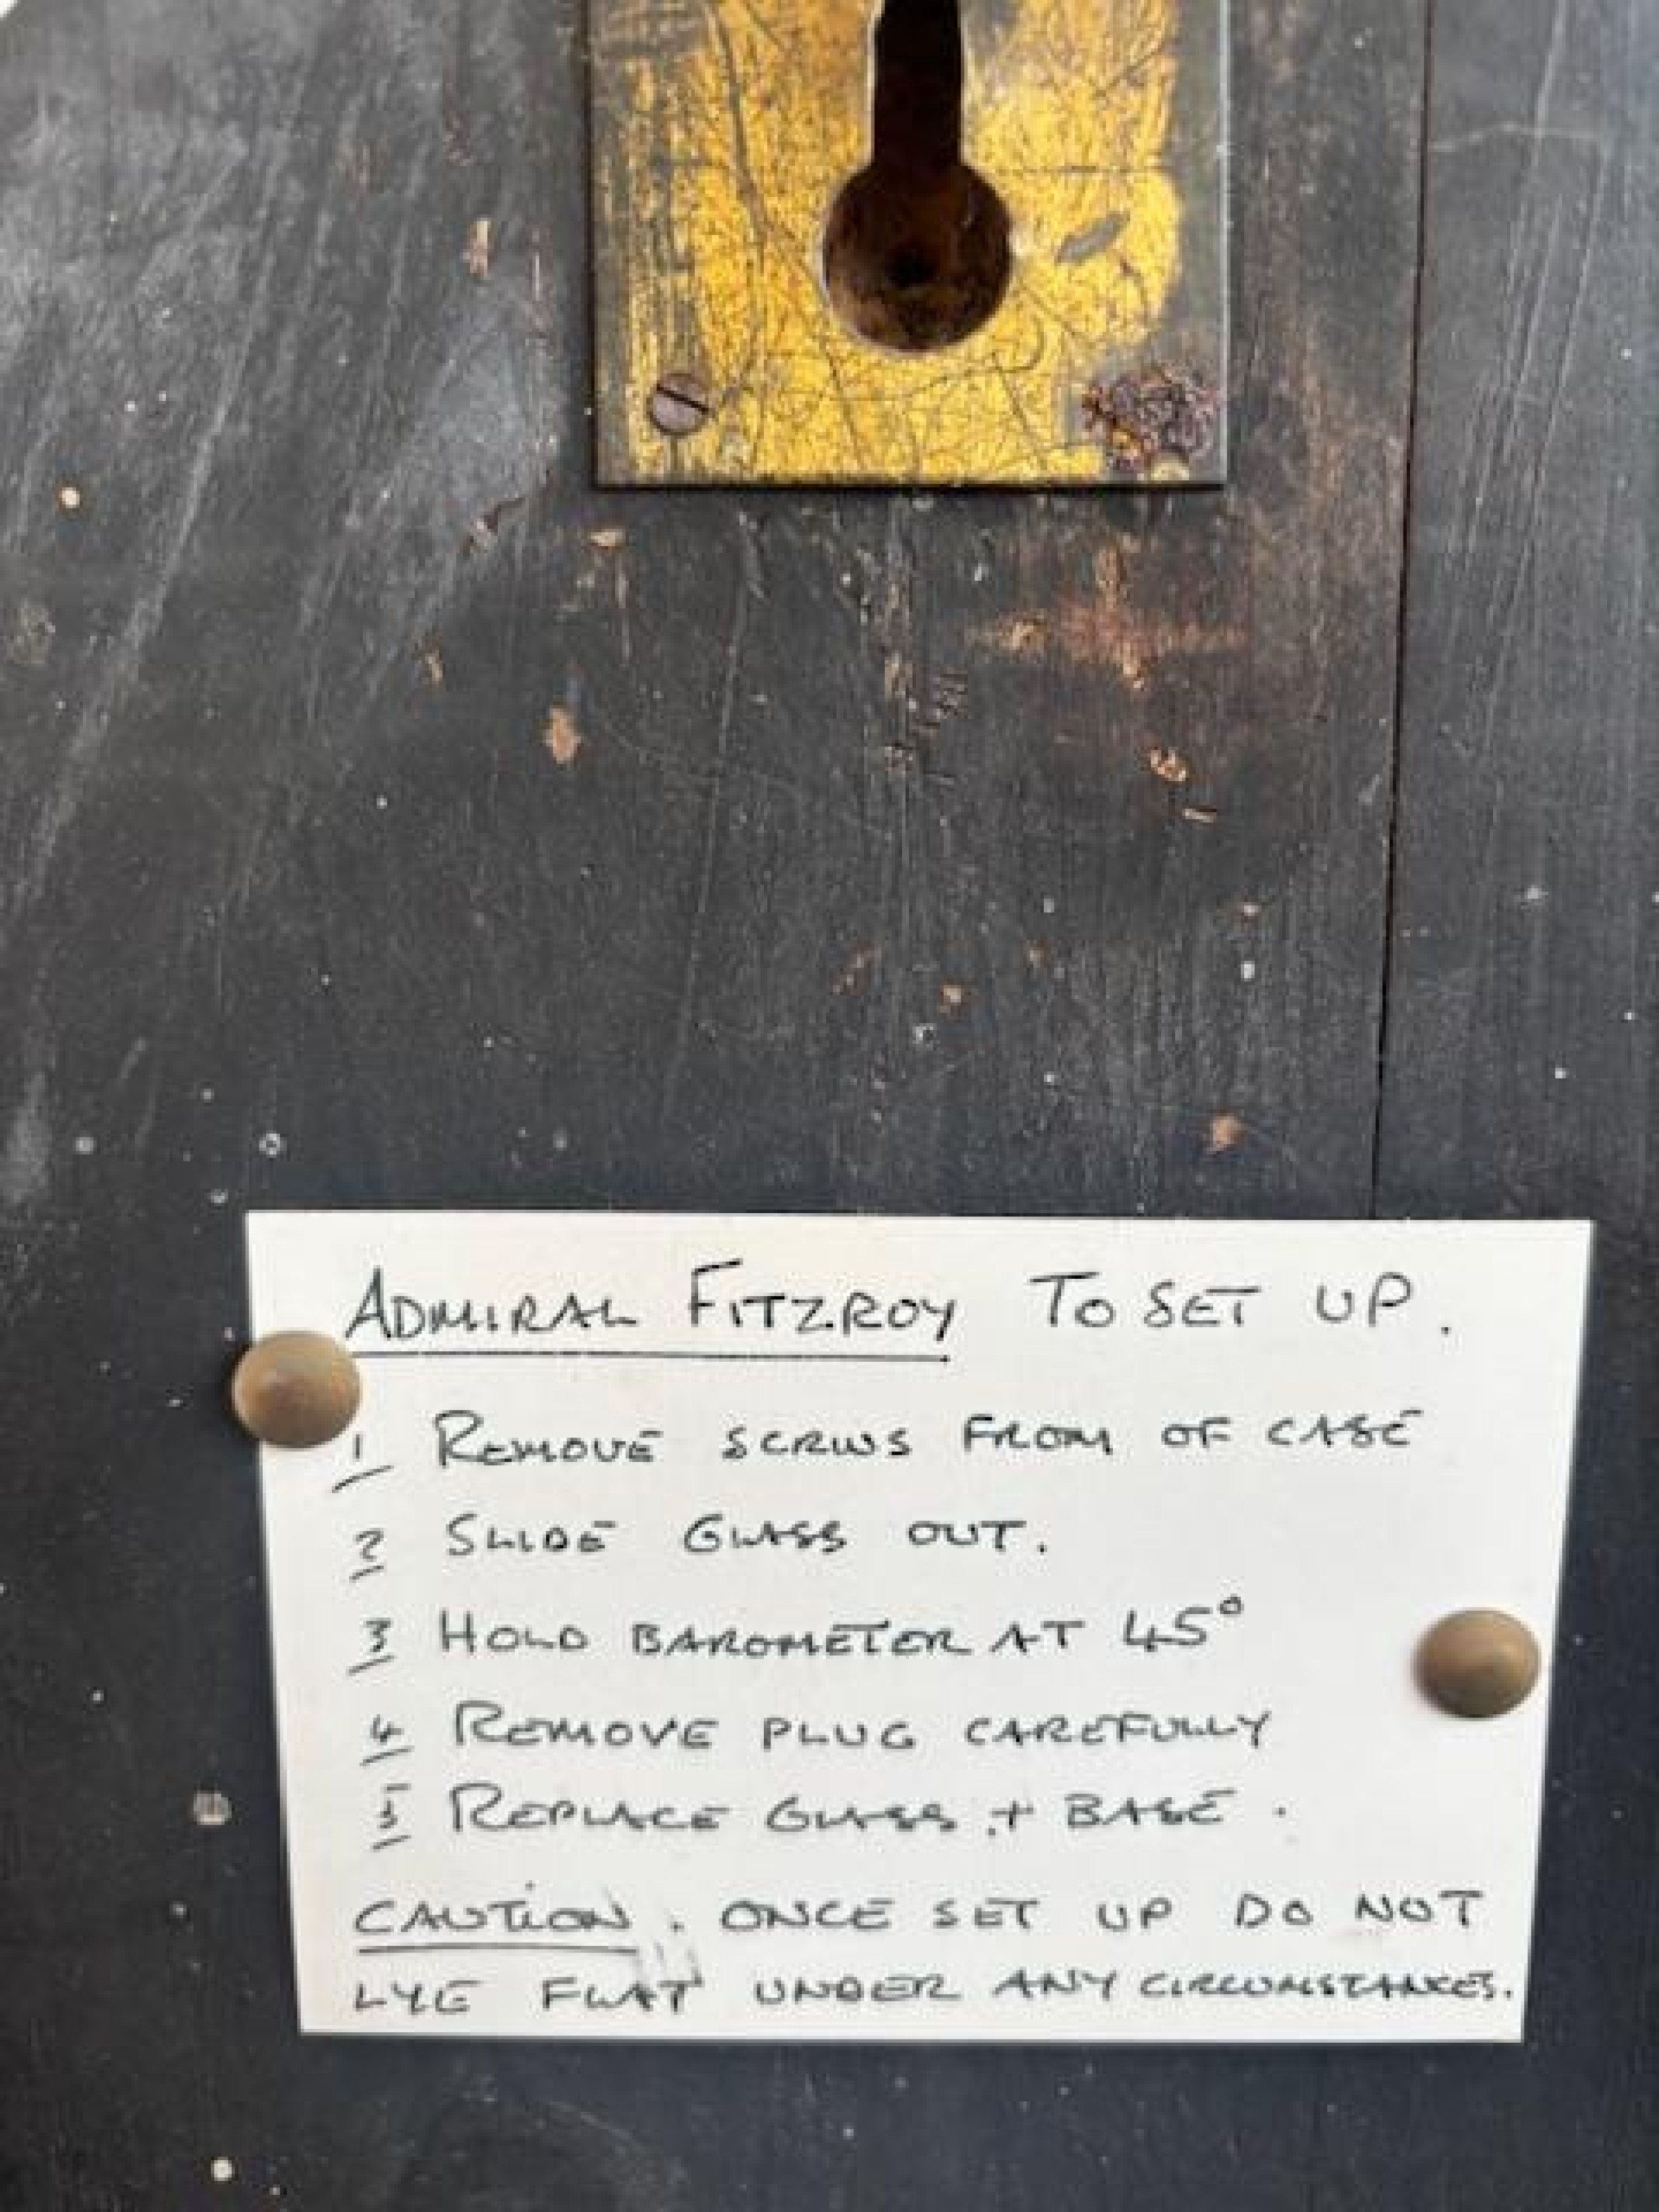 ADMIRAL FITZROY TO SET UP.
1 REMOVE SCRWS FROM OF CASE
2 SLIDE GLASS OUT.
3 HOLD BAROMETER AT 45°
4 REMOVE PLUG CAREFULLY
5 REPLACE GLASS + BASE.
CAUTION. ONCE SET UP DO NOT
LYE FLAT UNDER ANY CIRCUMSTANCES.